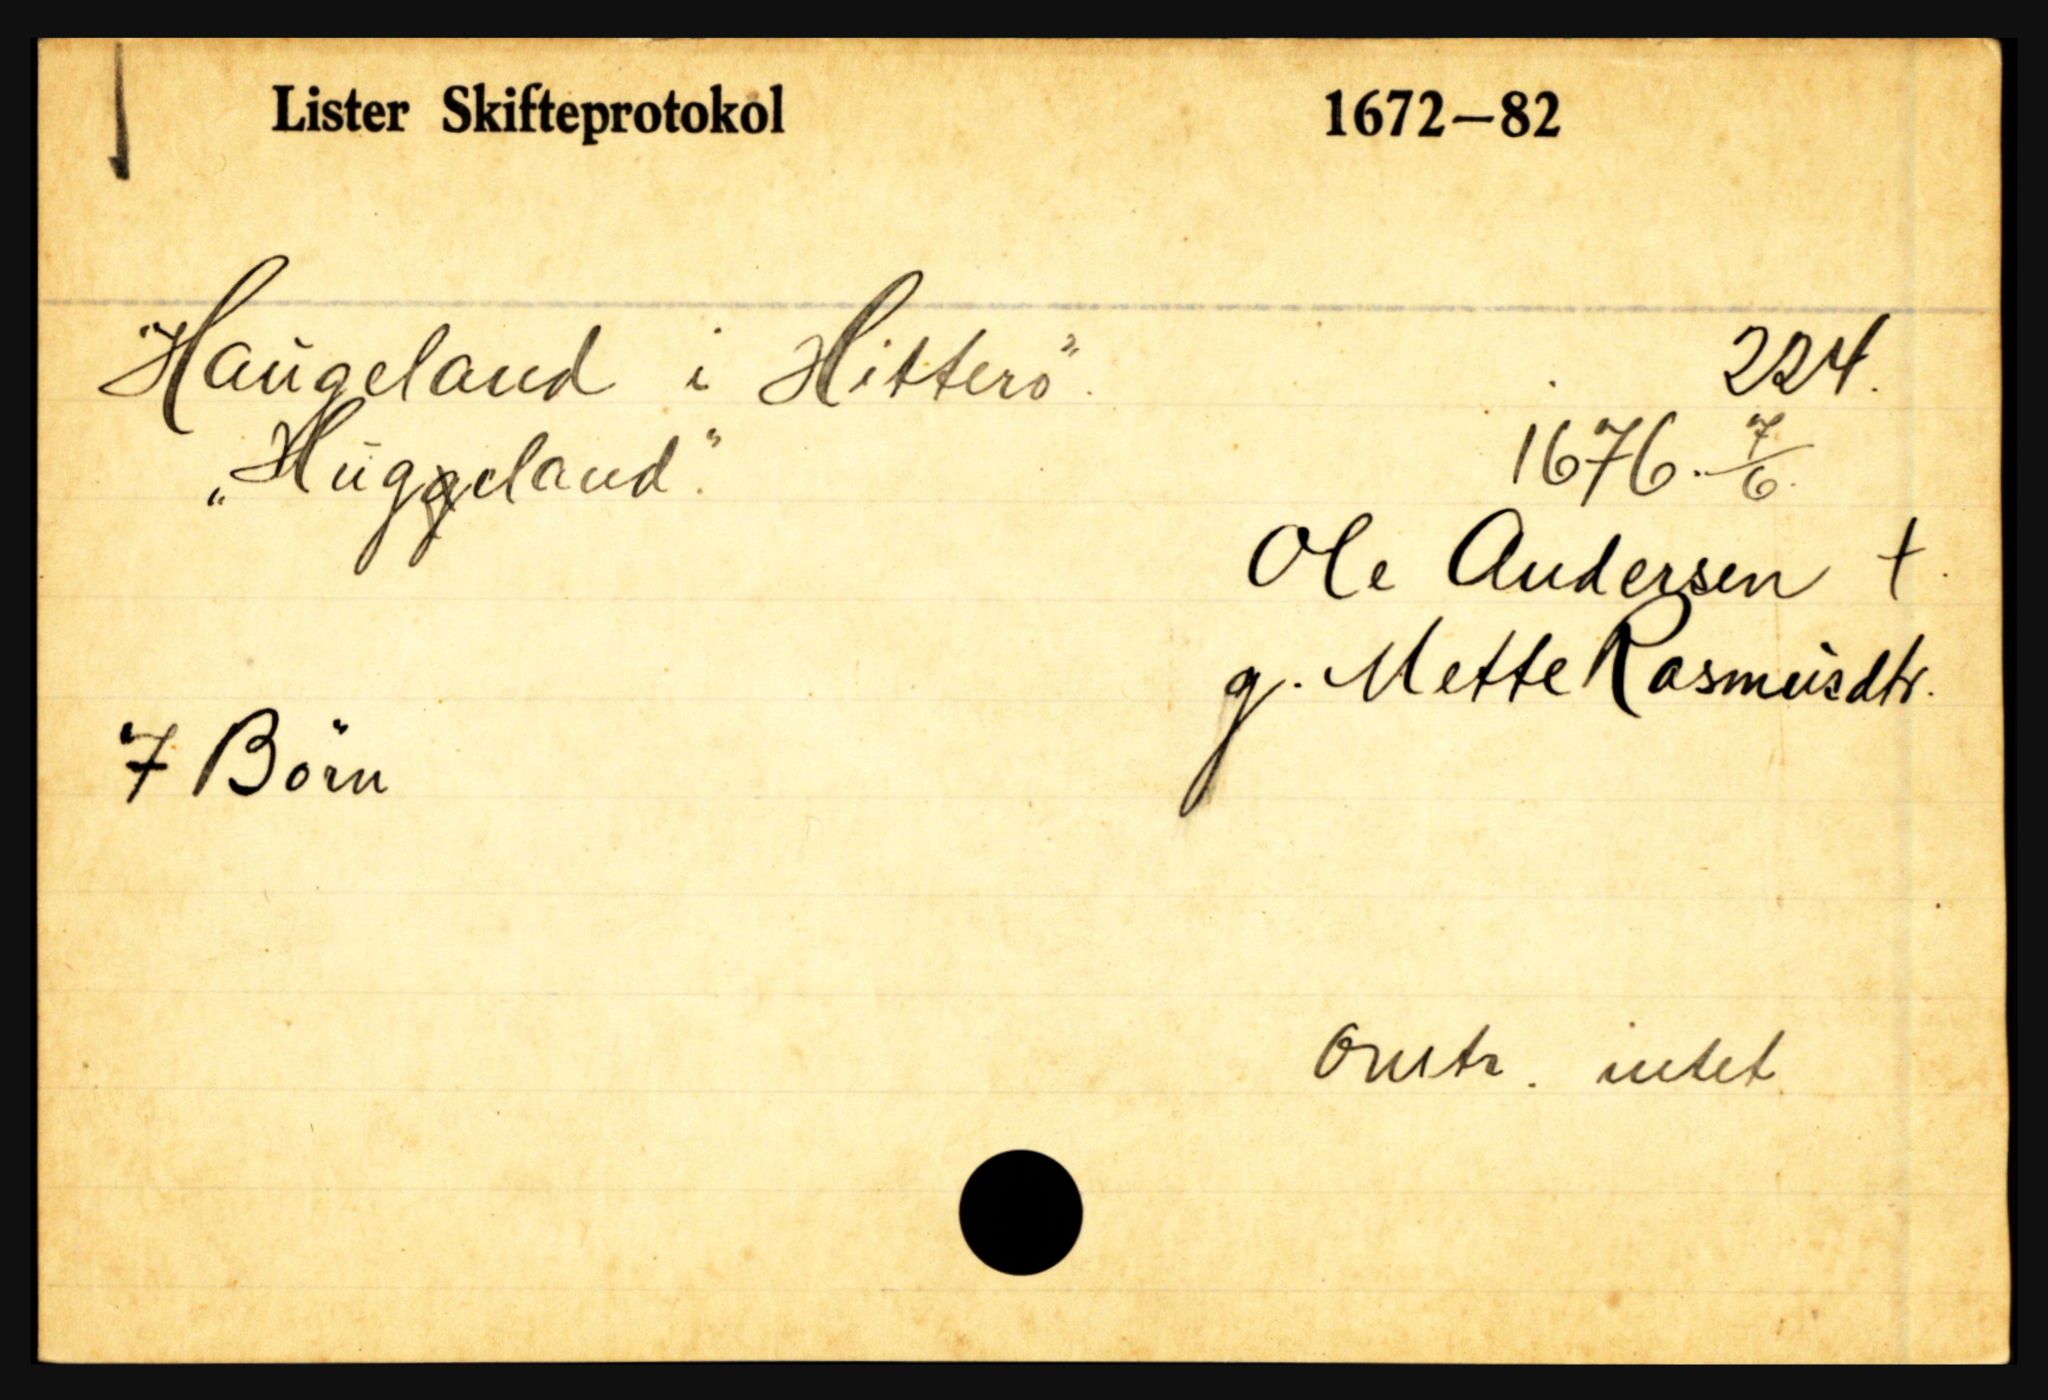 Lister Skifteprotokol 1672—82
Haugeland i Hitterö. 224.
„Huggeland". 1676. 7/6.
Ole Andersen †.
g. Mette Rasmusdtr.
7 Börn
intet